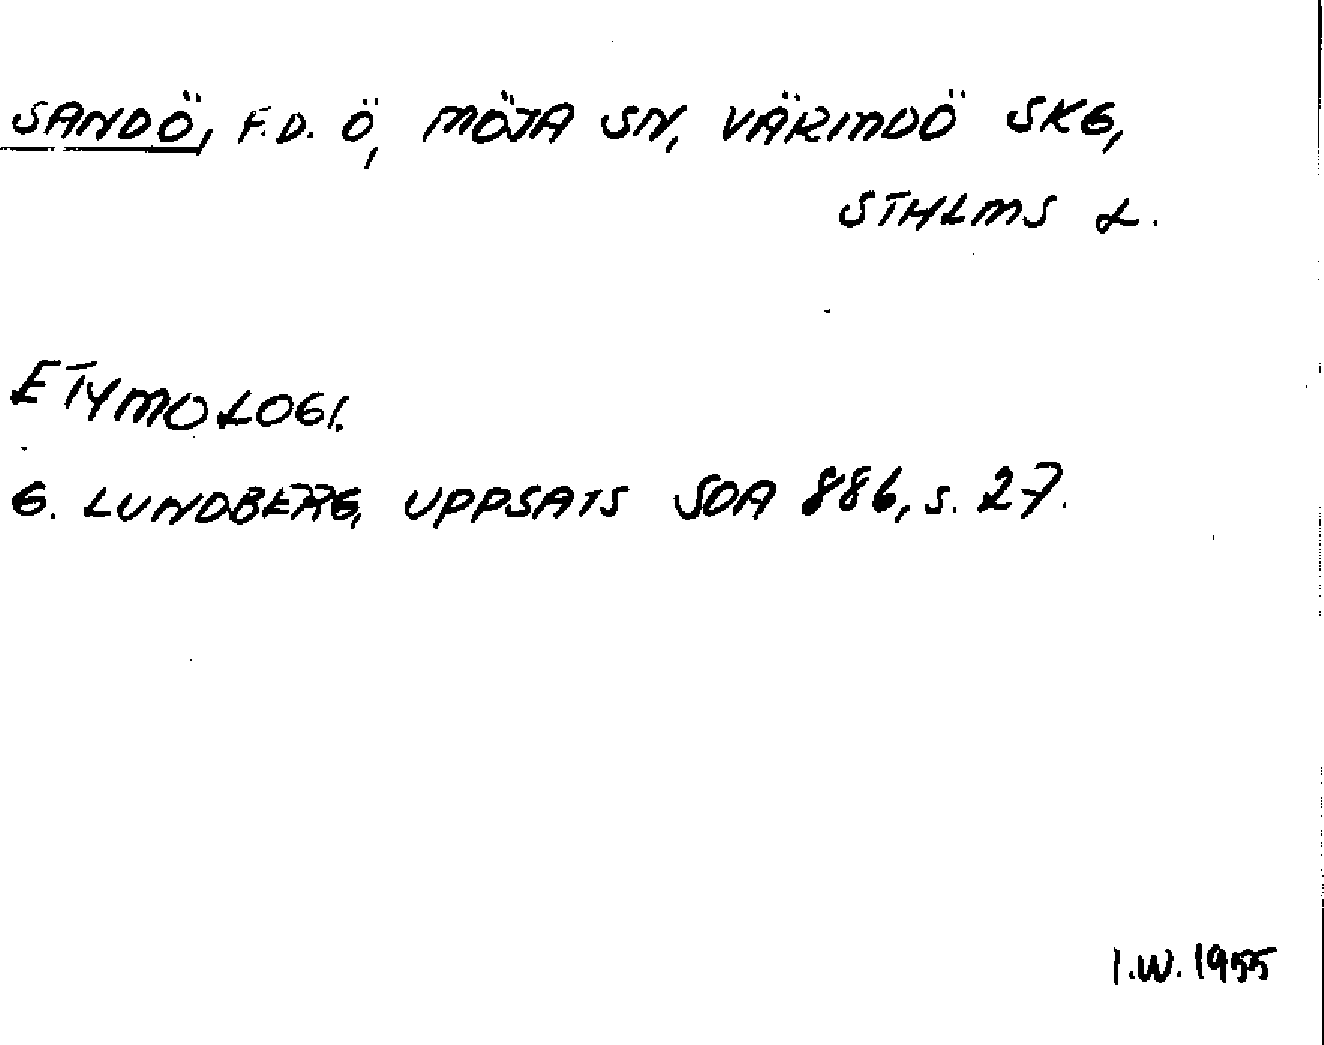 SANDÖ, F.D. Ö, MÖJA SN, VÄRMDÖ SKG,
STHLMS L.
ETYMOLOGI.
G. LUNDBERG, UPPSATS SOA 886, S. 27.
I.W. 1955